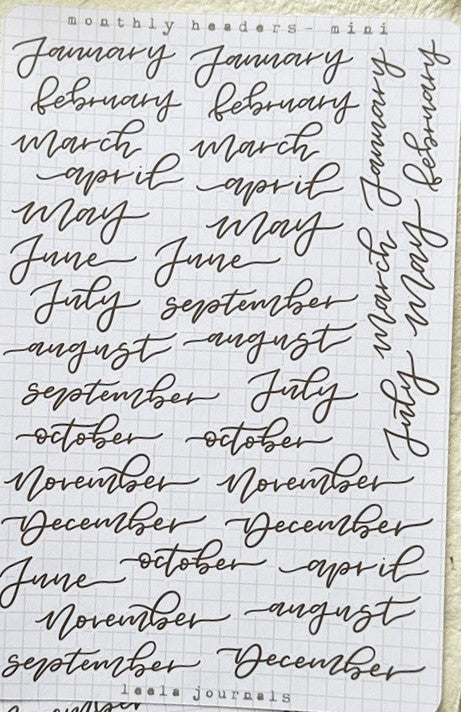 monthly headers - mini
January January
february february
march march
april april
May May
June June
July september
august august
september July
october october
November November
December December
June october april
November august
september December
leela journals
January february
march May
July